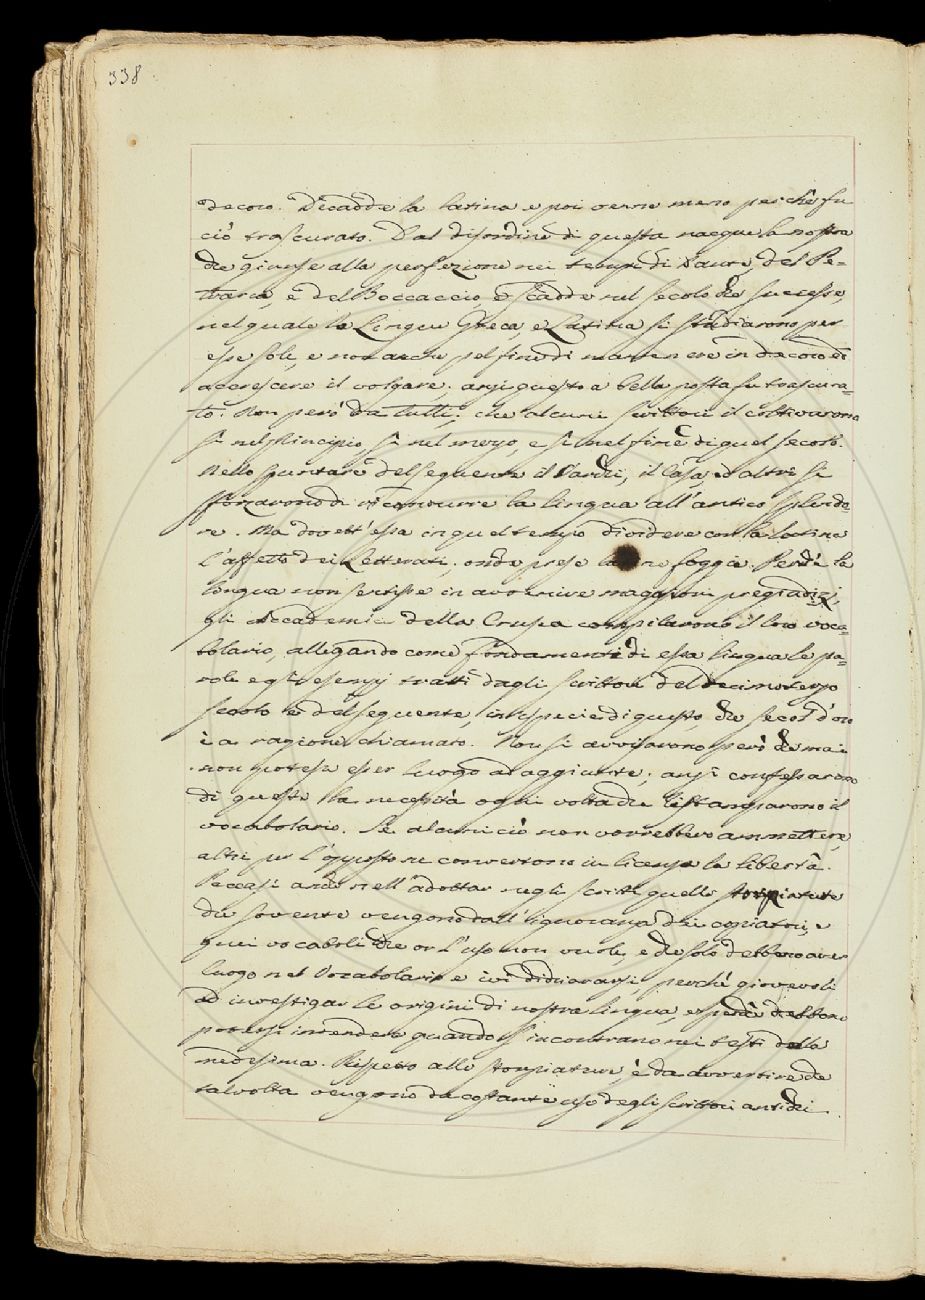 338
decoro. Decadde la latina e poi venne meno perchè fu
ciò trascurato. Dal disordine di questa nacque la nostra
che giunse alla perfezione nei tempi di Dante, del Pe-
trarca, e del Boccaccio, e scadde nel secolo che successe,
nel quale la Lingua Greca, e Latina si studiarono per
esse sole, e non anche pel fine di mantenere in decoro ed
accrescere il volgare; anzi questo a bella posta fu trascura-
to. Non però da tutti; che alcuni scrittori il coltivarono
sì nel principio, sì nel mezzo, e sì nel fine di quel secolo.
Nello spuntare del seguente il Varchi, il Casa ed altri si
sforzarono di ricondurre la lingua all'antico splendo-
re. Ma dovett'essa in quel tempo dividere con la latina
l'affetto dei Letterati; onde prese foggia. Perchè la
lingua non sentisse in avvenire maggiori pregiudizi,
gli Accademici della Crusca compilarono il loro voca-
bolario, allegando come fondamenti di essa lingua le pa-
role e gli esempj tratti dagli scrittori del decimoterzo
secolo e del seguente, in ispecie di questo, che secol d'oro
è a ragione chiamato. Non si avvisarono però che mai
non potesse esser luogo ad aggiunte; anzi confessarono
di queste la necessità ogni volta che ristamparono il
vocabolario. Se alcuni ciò non vorrebbero ammettere,
altri per l'opposto ne convertono in licenza la libertà.
Peccasi anche nell'adottar negli scritti quelle storpiature
che sovente vengono dall'ignoranza dei copiatori, e
quei vocaboli che or l'uso non vuole, e che solo debbono aver
luogo nel Vocabolario e ivi dichiararsi perchè giovevoli
ad investigar le origini di nostra lingua, e perchè debbono
potersi intendere quando s'incontrano nei testi della
medesima. Rispetto alle storpiature, è da avvertire che
talvolta vengono da costante uso degli scrittori antichi